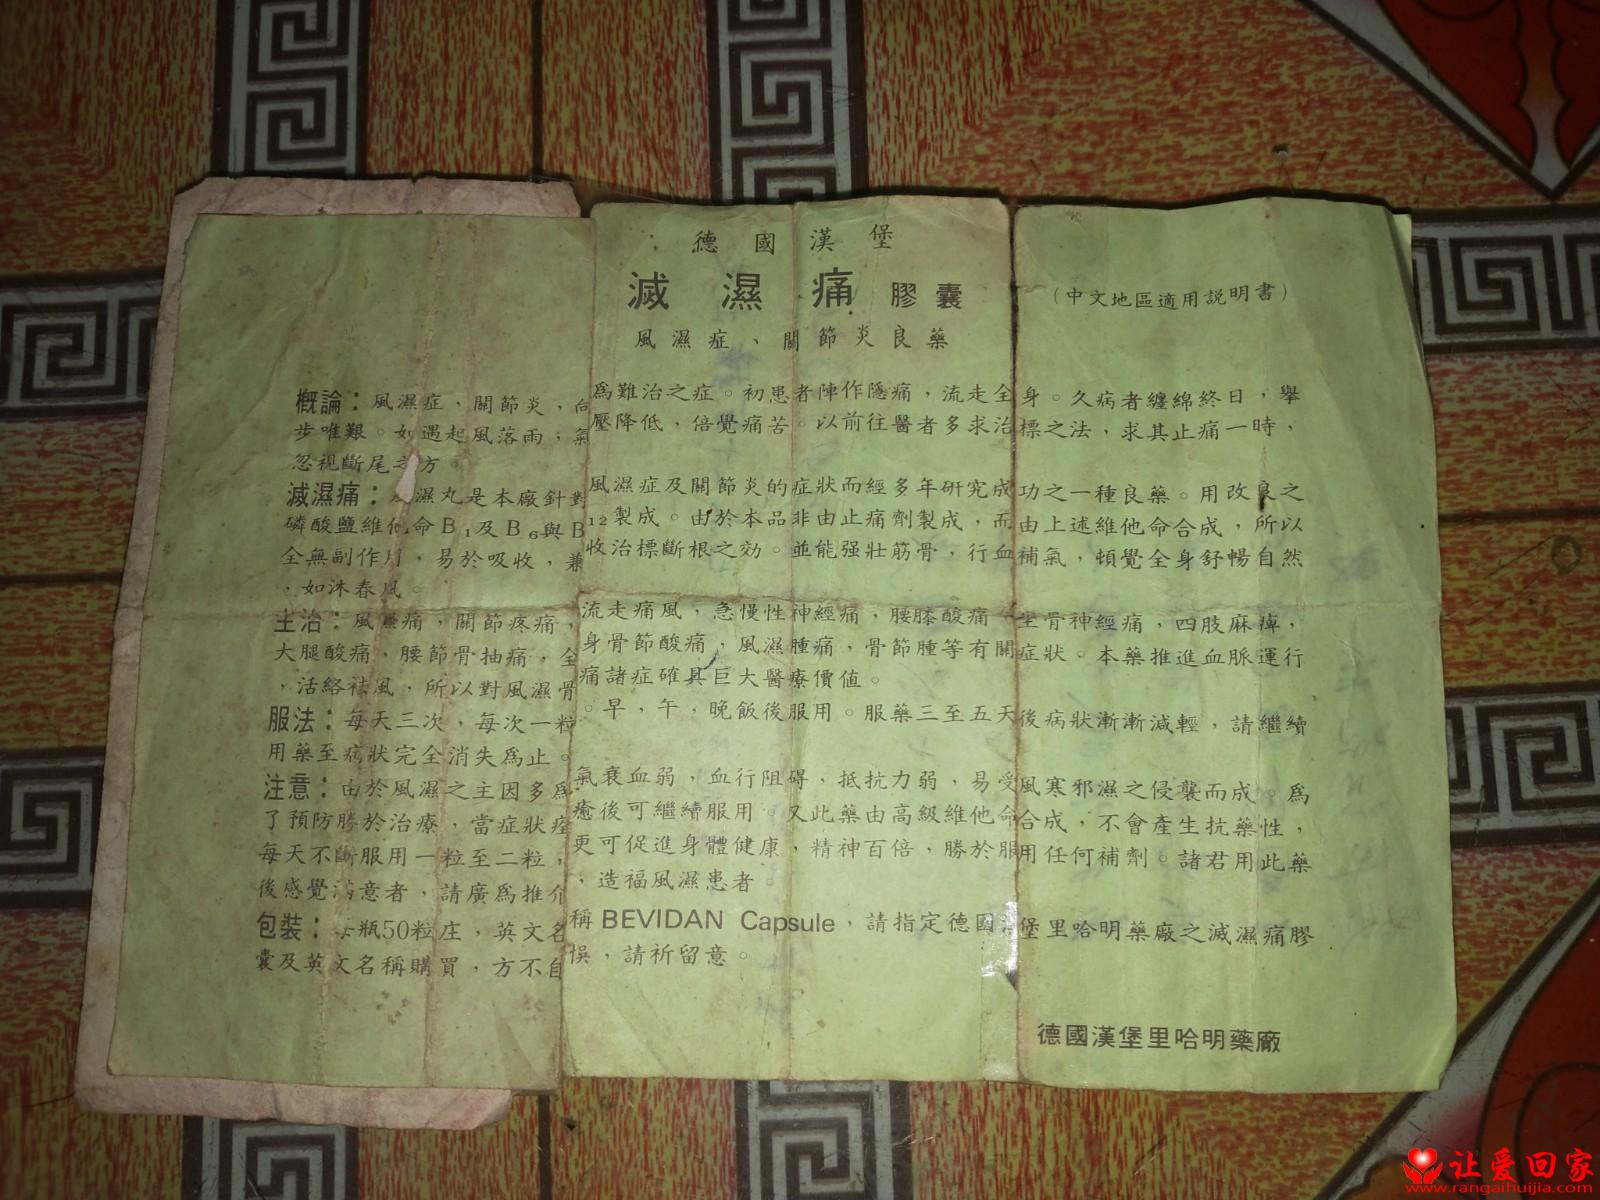 德國漢堡
滅濕痛膠囊
（中文地區適用説明書）
風濕症、關節炎良藥
概論：風濕症、關節炎，向爲難治之症。初患者陣作隱痛，流走全身。久病者纏綿終日，舉
步唯艱。如遇起風落雨，氣壓降低，倍覺痛苦。以前往醫者多求治標之法，求其止痛一時，
忽視斷尾之方。
滅濕痛：濕丸是本廠針對風濕症及關節炎的症狀而經多年研究成功之一種良藥。用改良之
磷酸鹽維他命B₁及B₆與B₁₂製成。由於本品非由止痛劑製成，而由上述維他命合成，所以
全無副作用，易於吸收，兼收治標斷根之効。並能强壯筋骨，行血補氣，頓覺全身舒暢自然
，如沐春風。
主治：風濕痛，關節疼痛，流走痛風，急慢性神經痛，腰膝酸痛，坐骨神經痛，四肢麻痺，
大腿酸痛，腰節骨抽痛，全身骨節酸痛，風濕腫痛，骨節腫等有關症狀。本藥推進血脈運行
，活絡祛風，所以對風濕骨痛諸症確具巨大醫療價值。
服法：每天三次，每次一粒。早，午，晚飯後服用。服藥三至五天後病狀漸漸減輕，請繼續
用藥至病狀完全消失爲止。
注意：由於風濕之主因多爲氣衰血弱，血行阻碍，抵抗力弱，易受風寒邪濕之侵襲而成。爲
了預防勝於治療，當症狀痊癒後可繼續服用。又此藥由高級維他命合成，不會產生抗藥性，
每天不斷服用一粒至二粒，更可促進身體健康，精神百倍，勝於服用任何補劑。諸君用此藥
後感覺滿意者，請廣爲推介，造福風濕患者。
包裝：每瓶50粒庄，英文名稱BEVIDAN Capsule，請指定德國漢堡里哈明藥廠之滅濕痛膠
囊及英文名稱購買，方不自悞，請祈留意。
德國漢堡里哈明藥廠
让爱回家
www.rangaihuijia.com